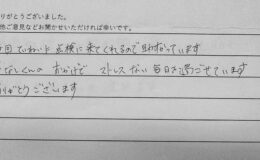 りがとうございました。
他ご意見などお聞かせいただければ幸いです。
回ていねいに点検に来てくれるので助かっています
なしくんのおかげでストレスない毎日を過ごせています
りがとうございます